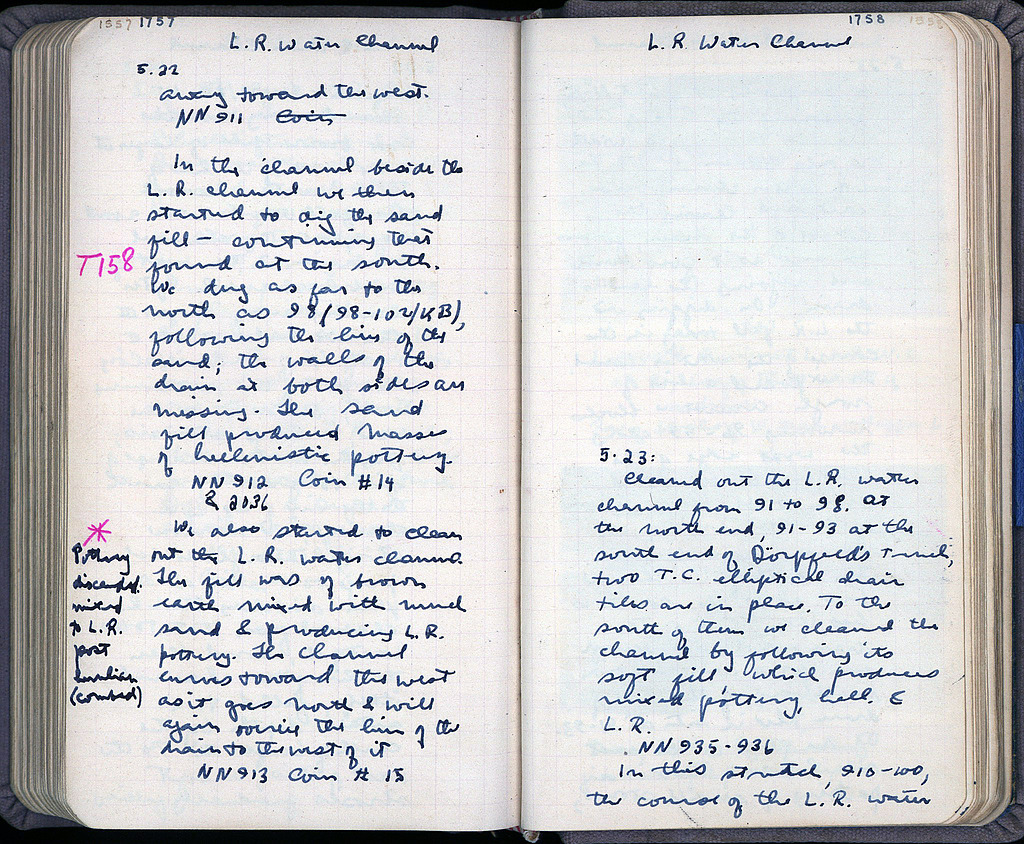 1557 1757
L. R. Water Channel
5.22
away toward the west.
NN 911 Coin
In the channel beside the
L. R. channel we then
started to dig the sand
fill — continuing that
T158
found at the south.
We dug as far to the
north as 98 (98-102/KB),
following the line of the
sand; the walls of the
drain at both sides are
missing. The sand
fill produced masses
of hellenistic pottery.
NN 912 Coin #14
& 2036
We also started to clean
out the L. R. water channel.
The fill was of brown
earth mixed with much
sand & producing L. R.
pottery. The channel
curves toward the west
as it goes north & will
again the line of the
drain to the west of it
NN 913 Coin # 15
*
Pottery
discarded.
mixed
to L. R.
post
(combed)
1758 1558
L. R. Water Channel
5.23:
Cleaned out the L. R. water
channel from 91 to 98. At
the north end, 91-93 at the
south end of Dörpfeld's Trench,
two T.C. elliptical drain
tiles are in place. To the
south of them we cleaned the
channel by following its
soft fill which produces
mixed pottery, hell. &
L. R.
NN 935-936
In this stretch, 910-100,
the course of the L. R. water